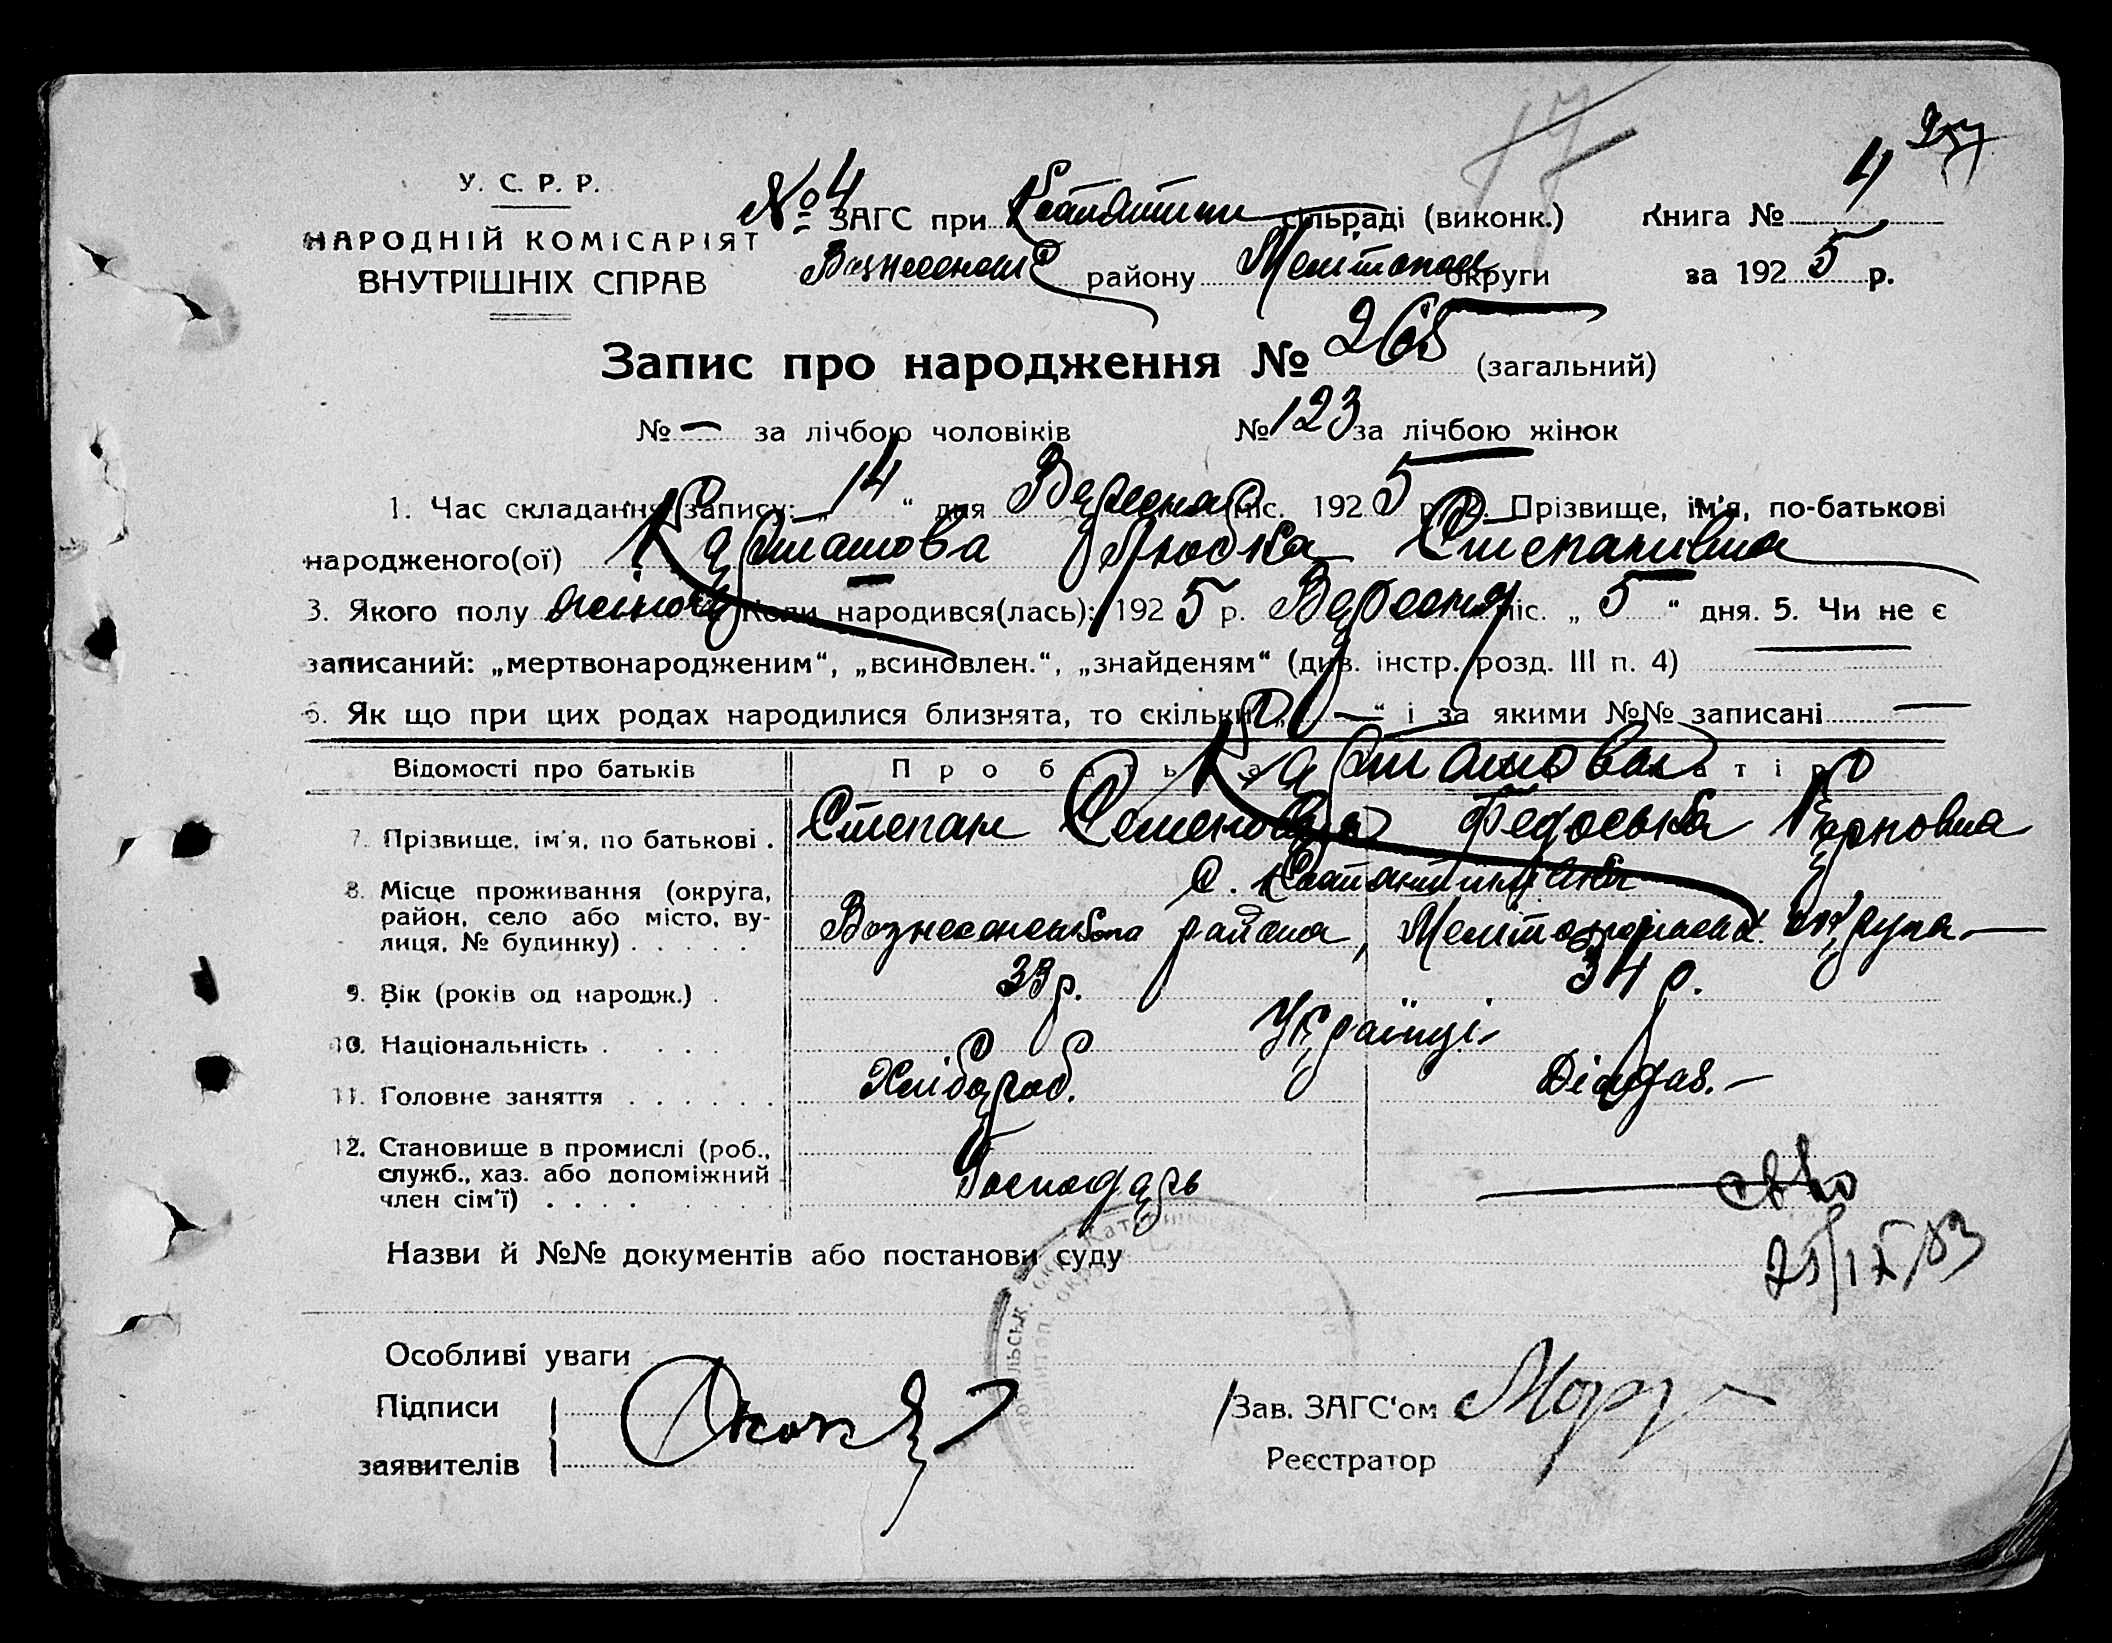 17
У. С. Р. Р.
НАРОДНІЙ КОМІСАРІЯТ
ВНУТРІШНІХ СПРАВ
№ 4 ЗАГС при Костянтин сільраді (виконк.) Книга № 4
Вознесенськ району Меліtопол округи за 1925 р.
Запис про народження № 265 (загальний)
№ — за лічбою чоловіків № 123 за лічбою жінок
1. Час складання запису: „ 14 “ дня Вересня міс. 1925 р. 2. Прізвище, ім'я, по-батькові
народженого(ої) Карташова Любка Степанивна
3. Якого полу жіноч. 4. Коли народився(лась): 1925 р. Вересня міс. „ 5 “ дня. 5. Чи не є
записаний: „мертвонародженим“, „всиновлен.“, „знайденям“ (див. інстр. розд. III п. 4) —
6. Як що при цих родах народилися близнята, то скільки „ — “ і за якими №№ записані —
Відомості про батьків Про батька Про матір
Карташови
7. Прізвище, ім'я, по батькові . Степан Семенович Федоська Карповна
8. Місце проживання (округа, район, село або місто, вулиця, № будинку) . . . . . с. Костянтинівка
Вознесенського района, Мелітопольськ. округа —
9. Вік (років од народж.) . 33 р. 34 р.
10. Національність . . . . Українці
11. Головне заняття . . . . . . Хлібороб.
12. Становище в промислі (роб., служб., хаз. або допоміжний член сім'ї) . . . . Господарь —
Назви й №№ документів або постанови суду
25/IX/83
Особливі уваги
Підписи
заявителів
Зав. ЗАГС'ом
Реєстратор